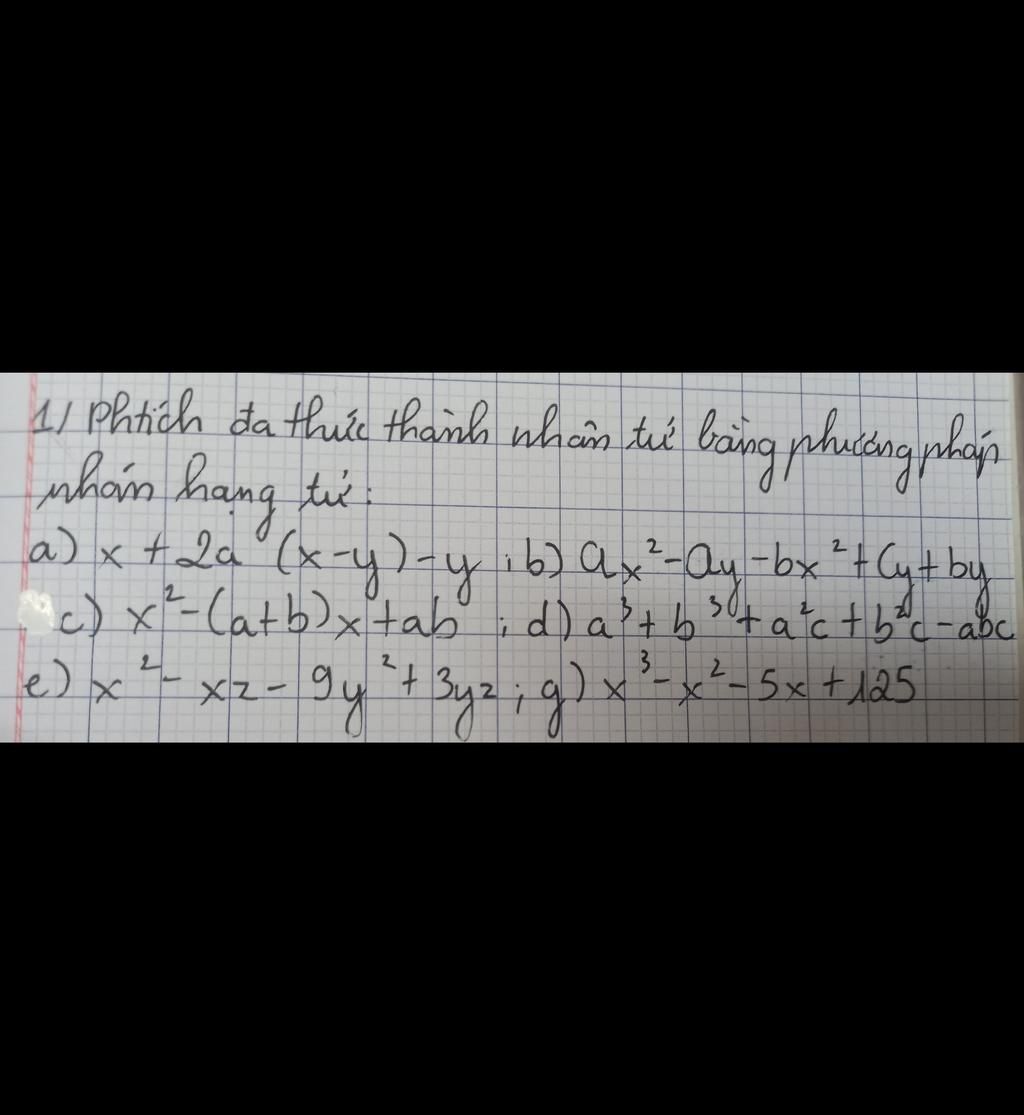 1/ Phtích đa thức thành nhân tử bằng phương pháp
nhóm hạng tử:
a) x + 2a (x-y) - y ; b) ax² - ay - bx² + cy + by
c) x² - (a+b)x + ab ; d) a³ + b³ + a²c + b²c - abc
e) x² - xz - 9y² + 3yz ; g) x³ - x² - 5x + 125